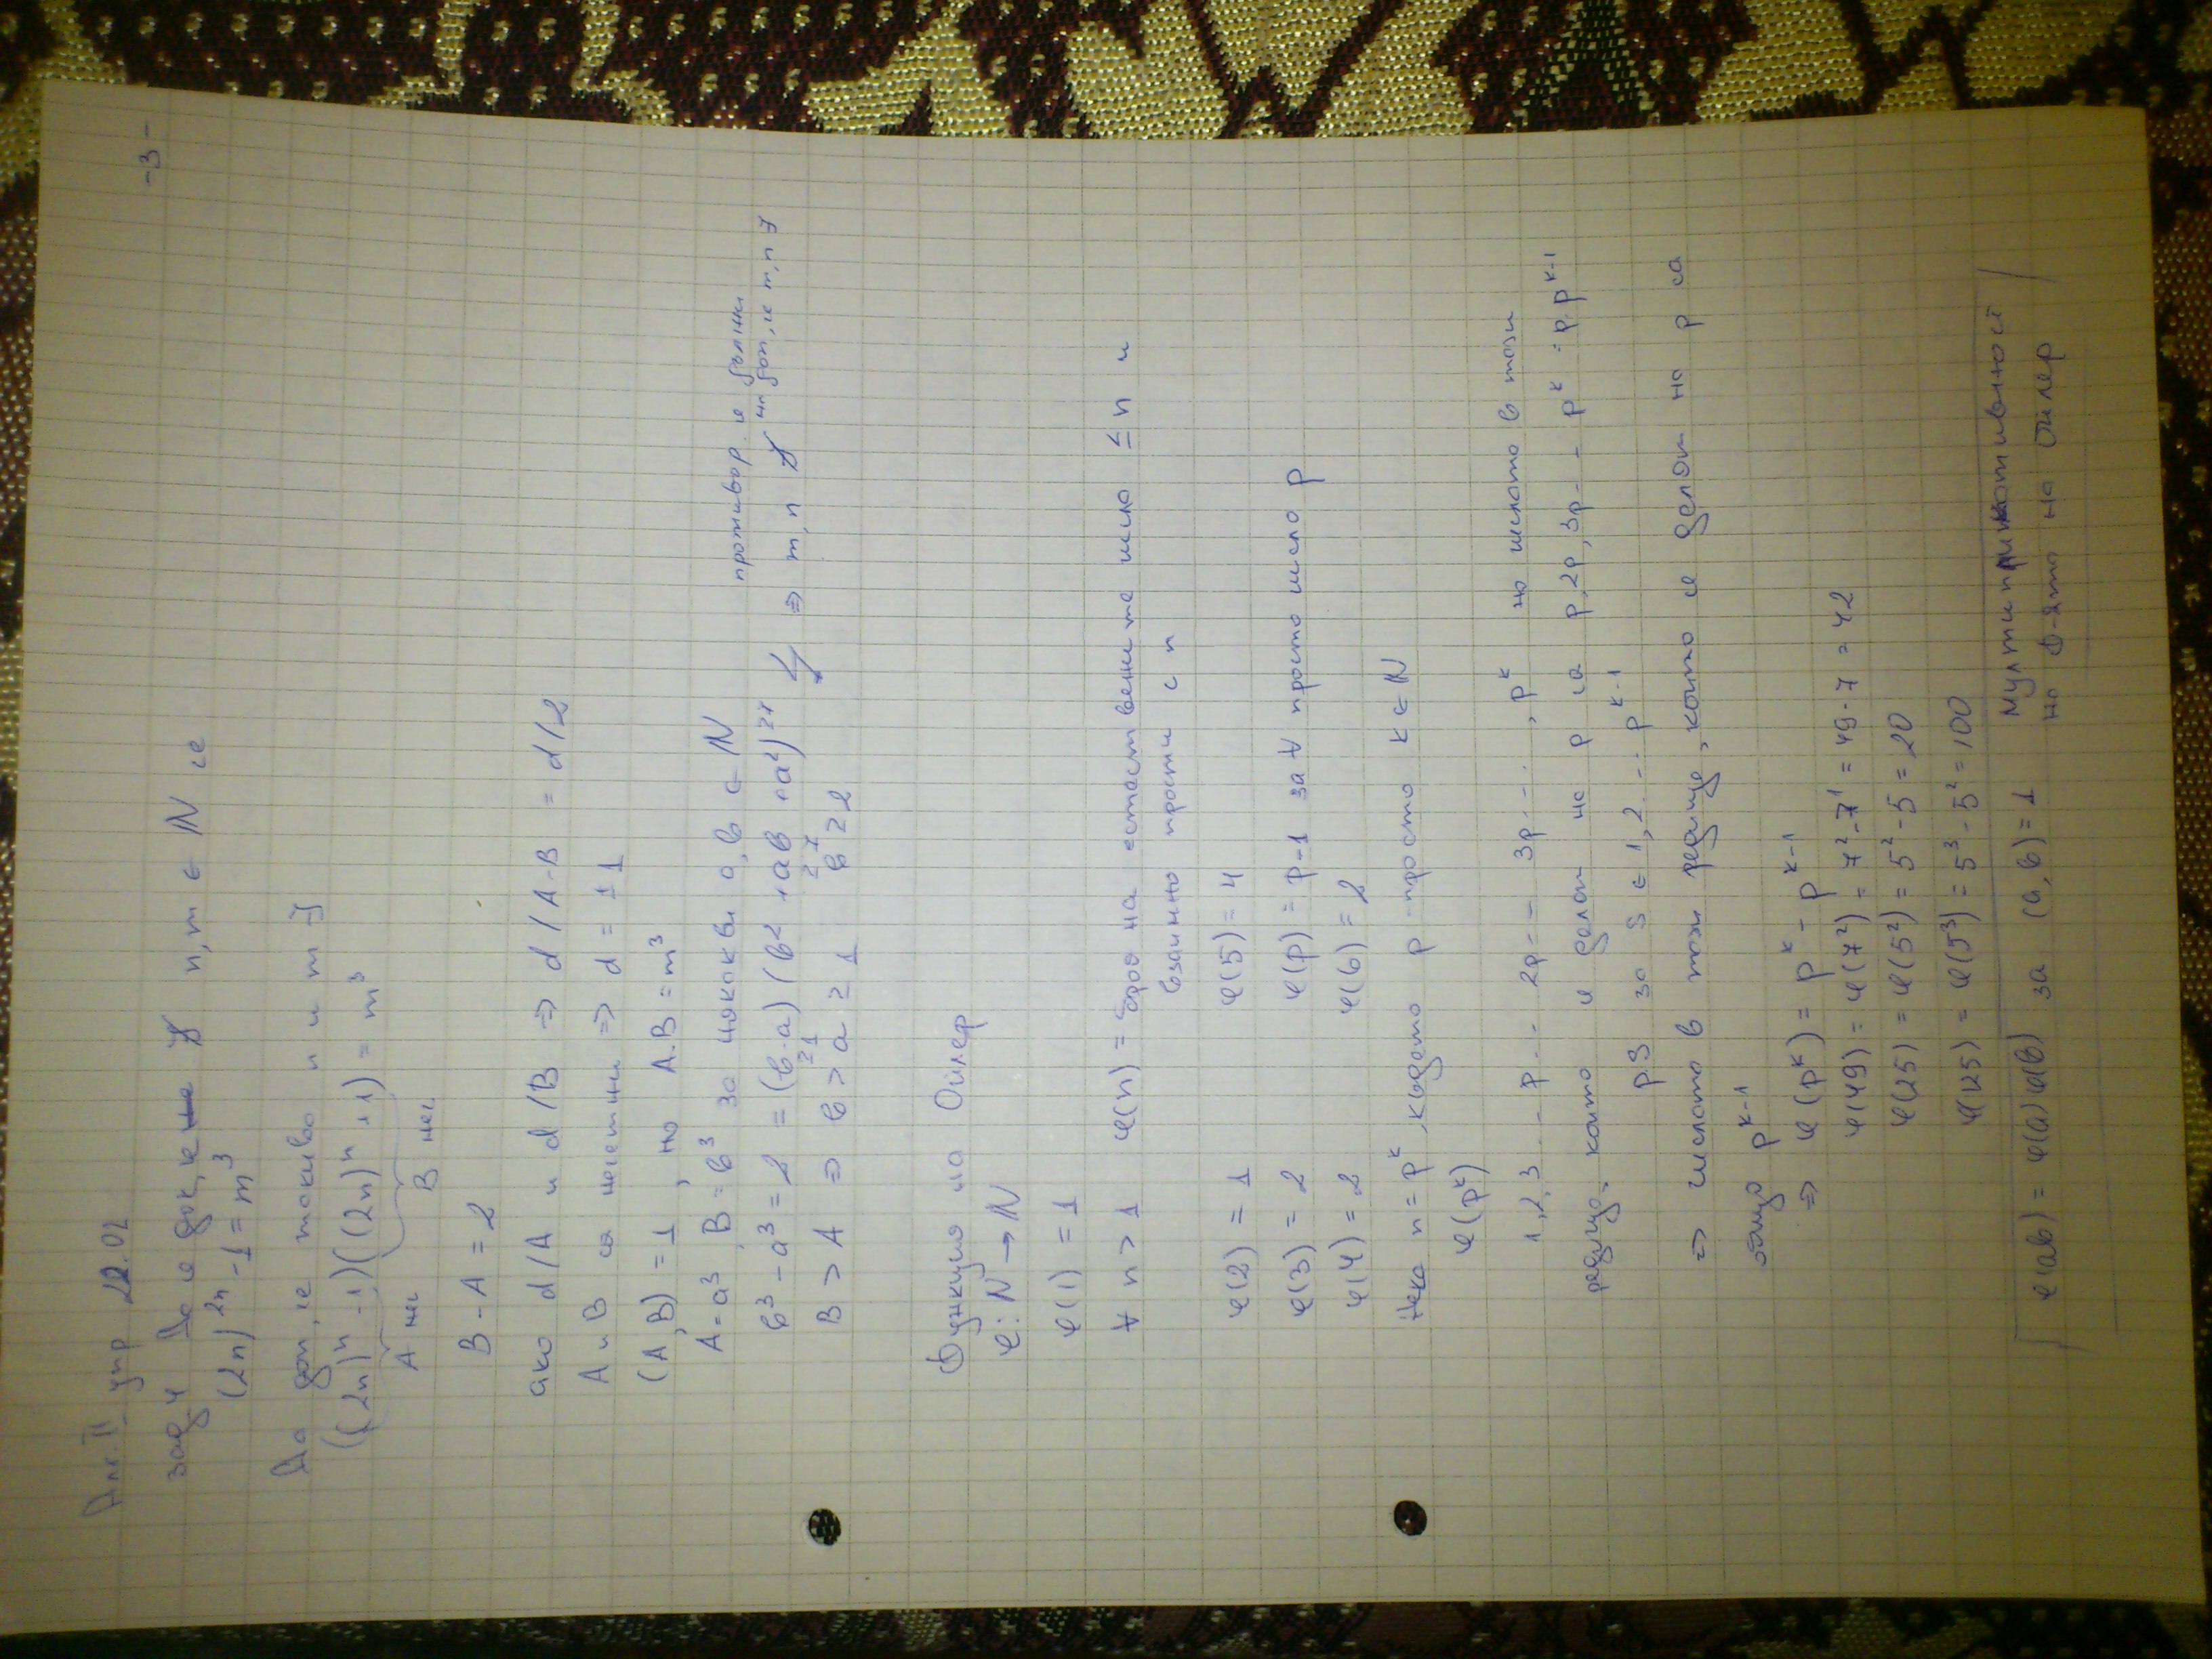 -3-
Алг. II упр 22.02
зад 4 Да се док, че ∄ n, m ∈ ℕ че
(2n)^2n - 1 = m^3
Да доп, че такива n и m ∃
((2n)^n - 1)((2n)^n + 1) = m^3
A неч B неч
B - A = 2
ако d/A и d/B => d/A-B = d/2
A и B са нечетни => d = ±1
(A, B) = 1, но A.B = m^3
A = a^3, B = b^3 за някакви a, b ∈ ℕ
b^3 - a^3 = 2 = (b-a)(b^2 + ab + a^2) ≥7
≥1 ≥7
B > A => b > a ≥ 1 b ≥ 2
=> m, n ∄
противор. се дължи
на доп, че m, n ∃
Функция на Ойлер
φ: ℕ → ℕ
φ(1) = 1
∀ n > 1 φ(n) = броя на естествените числа ≤ n и
взаимно прости с n
φ(2) = 1 φ(5) = 4
φ(3) = 2 φ(p) = p-1 за ∀ просто число p
φ(4) = 2 φ(6) = 2
Нека n = p^k, където p-просто k ∈ ℕ
φ(p^k)
1, 2, 3 . - - p - - 2p - - - 3p - . . . , p^k но числата в тази
редица, които се делят на p са p, 2p, 3p - - p^k = p.p^k-1
p.s за s ∈ 1, 2 - - - p^k-1
=> числата в тази редица, които се делят на p са
общо p^k-1
=> φ(p^k) = p^k - p^k-1
φ(49) = φ(7^2) = 7^2 - 7^1 = 49 - 7 = 42
φ(25) = φ(5^2) = 5^2 - 5 = 20
φ(125) = φ(5^3) = 5^3 - 5^2 = 100
φ(ab) = φ(a) φ(b) за (a, b) = 1 Мултипликативност
на ф-ята на Ойлер